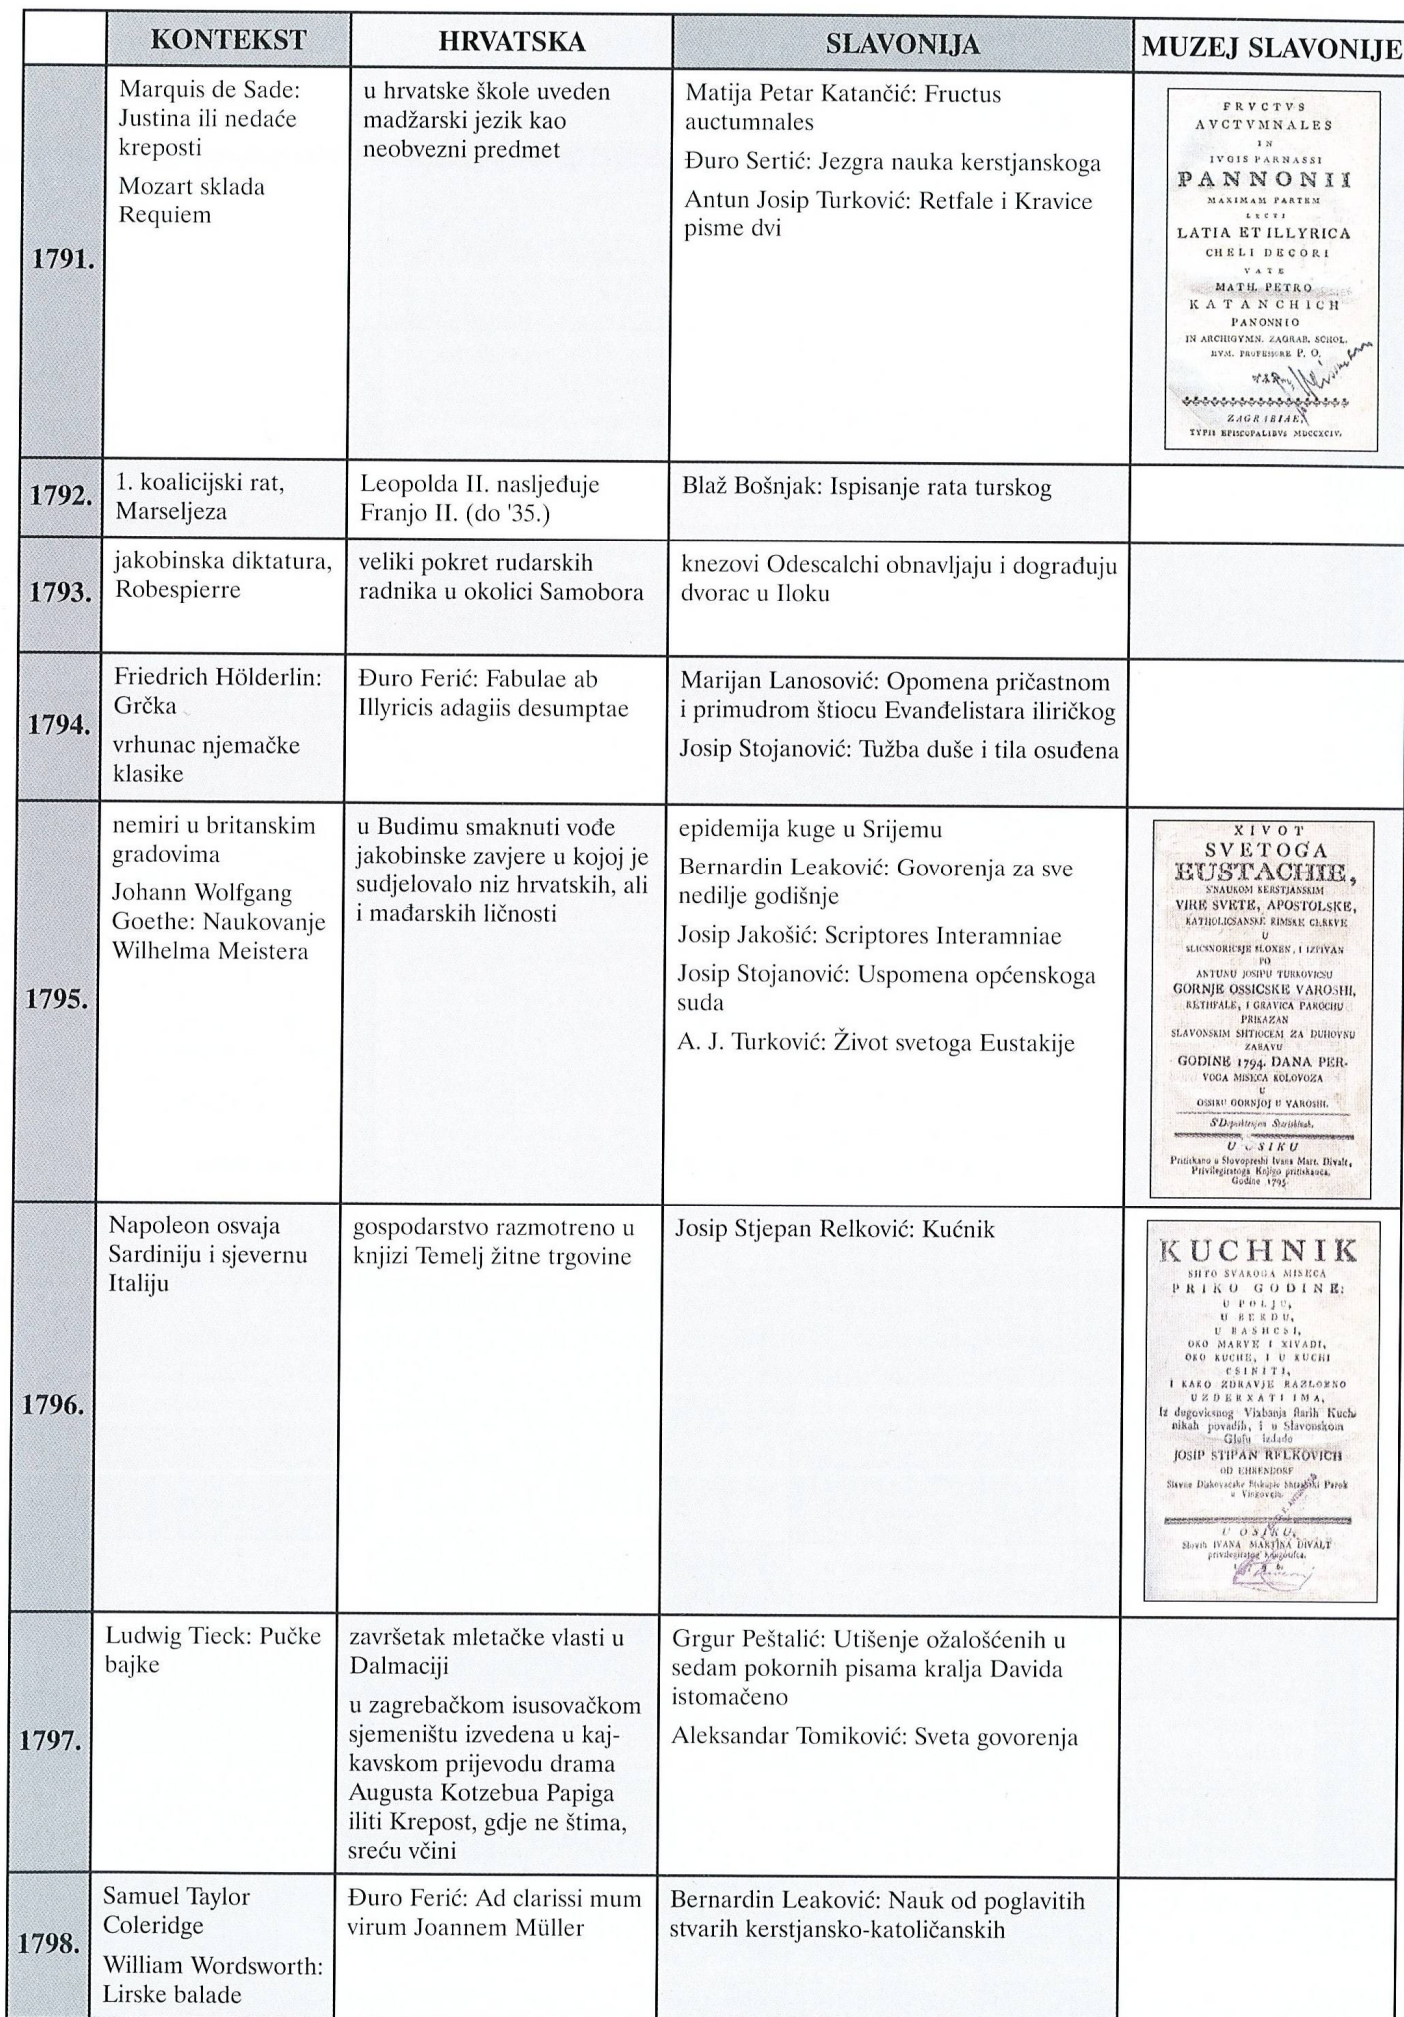 KONTEKST
HRVATSKA
SLAVONIJA
MUZEJ SLAVONIJE
1791.
Marquis de Sade:
Justina ili nedaće
kreposti
Mozart sklada
Requiem
u hrvatske škole uveden
madžarski jezik kao
neobvezni predmet
Matija Petar Katančić: Fructus
auctumnales
Đuro Sertić: Jezgra nauka kerstjanskoga
Antun Josip Turković: Retfale i Kravice
pisme dvi
FRVCTVS
AVCTVMNALES
IN
IVGIS PARNASSI
PANNONII
MAXIMAM PARTEM
LECTI
LATIA ET ILLYRICA
CHELI DECORI
VATE
MATH. PETRO
KATANCHICH
PANONNIO
IN ARCHIGYMN. ZAGRAB. SCHOL.
HVM. PROFESSORE P. O.
ZAGRABIAE,
TYPIS EPISCOPALIBVS MDCCXCIV.
1792.
1. koalicijski rat,
Marseljeza
Leopolda II. nasljeđuje
Franjo II. (do '35.)
Blaž Bošnjak: Ispisanje rata turskog
1793.
jakobinska diktatura,
Robespierre
veliki pokret rudarskih
radnika u okolici Samobora
knezovi Odescalchi obnavljaju i dograđuju
dvorac u Iloku
1794.
Friedrich Hölderlin:
Grčka
vrhunac njemačke
klasike
Đuro Ferić: Fabulae ab
Illyricis adagiis desumptae
Marijan Lanosović: Opomena pričastnom
i primudrom štiocu Evanđelistara iliričkog
Josip Stojanović: Tužba duše i tila osuđena
1795.
nemiri u britanskim
gradovima
Johann Wolfgang
Goethe: Naukovanje
Wilhelma Meistera
u Budimu smaknuti vođe
jakobinske zavjere u kojoj je
sudjelovalo niz hrvatskih, ali
i mađarskih ličnosti
epidemija kuge u Srijemu
Bernardin Leaković: Govorenja za sve
nedilje godišnje
Josip Jakošić: Scriptores Interamniae
Josip Stojanović: Uspomena općenskoga
suda
A. J. Turković: Život svetoga Eustakije
XIVOT
SVETOGA
EUSTACHIE,
S'NAUKOM KERSTJANSKIM
VIRE SVETE, APOSTOLSKE,
KATHOLICSANSKE RIMSKE CERKVE
U
SLICSNORICSJE SLOXEN, I IZPIVAN
PO
ANTUNU JOSIPU TURKOVICSU
GORNJE OSSICSKE VAROSHI,
RETHFALE, I GRAVICA PAROCHU
PRIKAZAN
SLAVONSKIM SHTIOCEM ZA DUHOVNU
ZABAVU
GODINE 1794. DANA PER-
VOGA MISECA KOLOVOZA
U
OSSIKU GORNJOJ U VAROSHI.
S'Dopushtenjem Starishinah.
U OSIKU
Pritiskano u Slovopreshi Ivana Mart. Divalt,
Privilegiratoga Knjigo pritiskaoca.
Godine 1795.
1796.
Napoleon osvaja
Sardiniju i sjevernu
Italiju
gospodarstvo razmotreno u
knjizi Temelj žitne trgovine
Josip Stjepan Relković: Kućnik
KUCHNIK
SHTO SVAKOGA MISECA
PRIKO GODINE:
U POLJU,
U BERDU,
U BASHCSI,
OKO MARVE I XIVADI,
OKO KUCHE, I U KUCHI
CSINITI,
I KAKO ZDRAVJE RAZLOXNO
UZDERXATI IMA,
Iz dugovicsnog Vixbanja starih Kuch-
nikah povadih, i u Slavonskom
Glasu izdade
JOSIP STIPAN RELKOVICH
OD EHRENDORF
Slavne Diakovacske Biskupie Parok
u Vinkovcih
U OSIKU,
Slovih IVANA MARTINA DIVALT
1797.
Ludwig Tieck: Pučke
bajke
završetak mletačke vlasti u
Dalmaciji
u zagrebačkom isusovačkom
sjemeništu izvedena u kaj-
kavskom prijevodu drama
Augusta Kotzebua Papiga
iliti Krepost, gdje ne štima,
sreću včini
Grgur Peštalić: Utišenje ožalošćenih u
sedam pokornih pisama kralja Davida
istomačeno
Aleksandar Tomiković: Sveta govorenja
1798.
Samuel Taylor
Coleridge
William Wordsworth:
Lirske balade
Đuro Ferić: Ad clarissi mum
virum Joannem Müller
Bernardin Leaković: Nauk od poglavitih
stvarih kerstjansko-katoličanskih